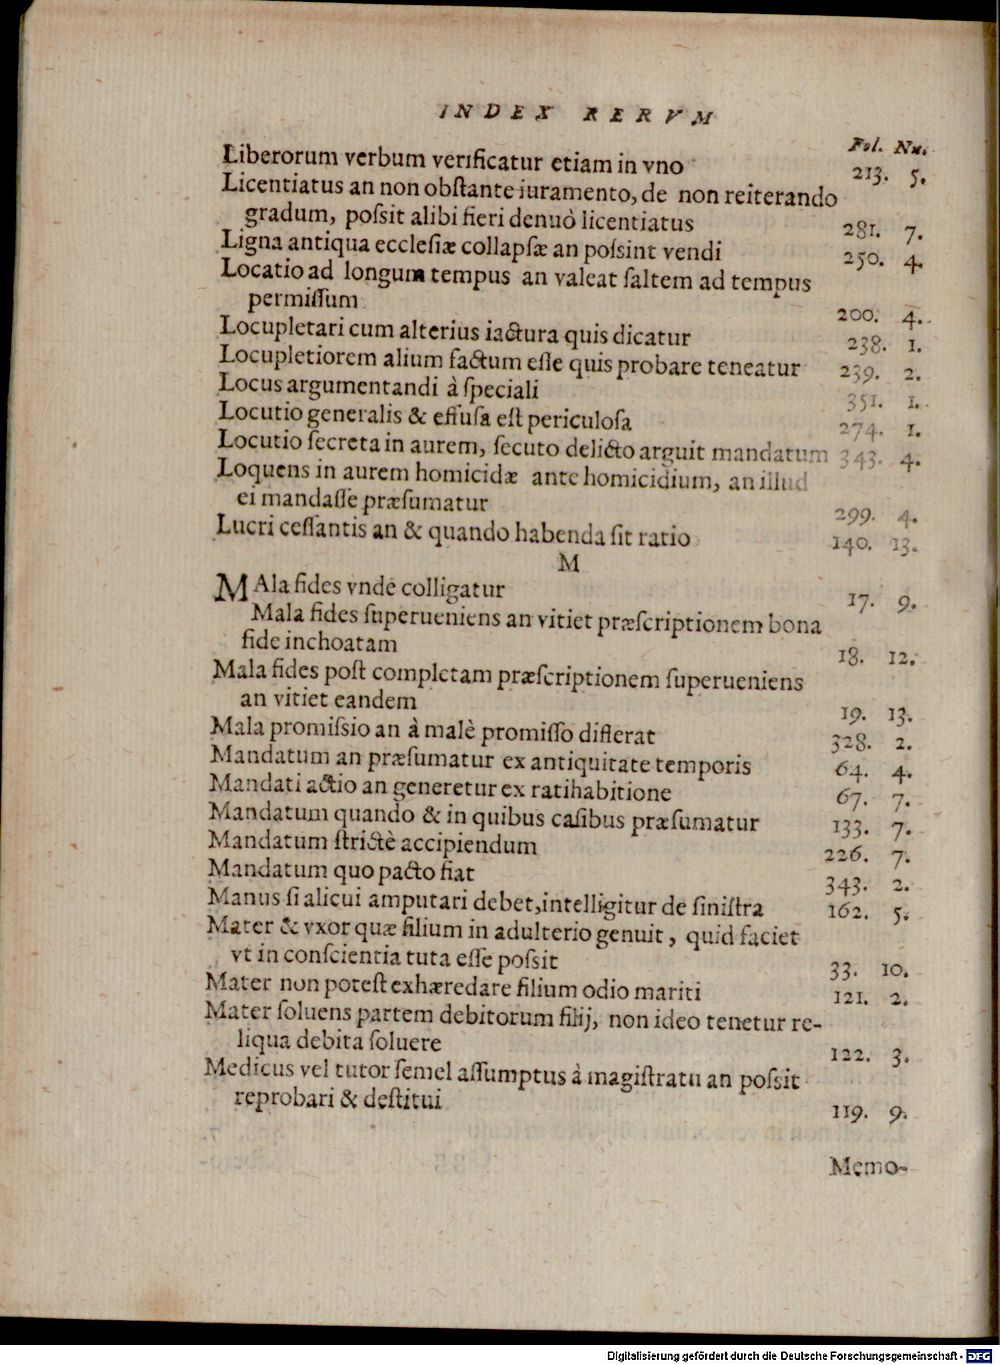 INDEX RERVM
Fol. Nu.
Liberorum verbum verificatur etiam in vno 213. 5.
Licentiatus an non obſtante iuramento, de non reiterando
gradum, poſsit alibi fieri denuò licentiatus 281. 7.
Ligna antiqua eccleſiæ collapſæ an poſsint vendi 250. 4.
Locatio ad longum tempus an valeat ſaltem ad tempus
permiſſum 200. 4.
Locupletari cum alterius iactura quis dicatur 238. 1.
Locupletiorem alium factum eſſe quis probare teneatur 239. 2.
Locus argumentandi à ſpeciali 351. 1.
Locutio generalis & effuſa eſt periculoſa 274. 1.
Locutio ſecreta in aurem, ſecuto delicto arguit mandatum 343. 4.
Loquens in aurem homicidæ ante homicidium, an illud
ei mandaſſe præſumatur 299. 4.
Lucri ceſſantis an & quando habenda ſit ratio 140. 13.
M
MAla fides vnde colligatur 17. 9.
Mala fides ſuperueniens an vitiet præſcriptionem bona
fide inchoatam 18. 12.
Mala fides poſt completam præſcriptionem ſuperueniens
an vitiet eandem 19. 13.
Mala promiſsio an à malè promiſſo differat 328. 2.
Mandatum an præſumatur ex antiquitate temporis 64. 4.
Mandati actio an generetur ex ratihabitione 67. 7.
Mandatum quando & in quibus caſibus præſumatur 133. 7.
Mandatum ſtrictè accipiendum 226. 7.
Mandatum quo pacto fiat 343. 2.
Manus ſi alicui amputari debet, intelligitur de ſiniſtra 162. 5.
Mater & vxor quæ filium in adulterio genuit, quid faciet
vt in conſcientia tuta eſſe poſsit 33. 10.
Mater non poteſt exhæredare filium odio mariti 121. 2.
Mater ſoluens partem debitorum filij, non ideo tenetur re-
liqua debita ſoluere 122. 3.
Medicus vel tutor ſemel aſſumptus à magiſtratu an poſsit
reprobari & deſtitui 119. 9.
Memo-
Digitalisierung gefördert durch die Deutsche Forschungsgemeinschaft - DFG